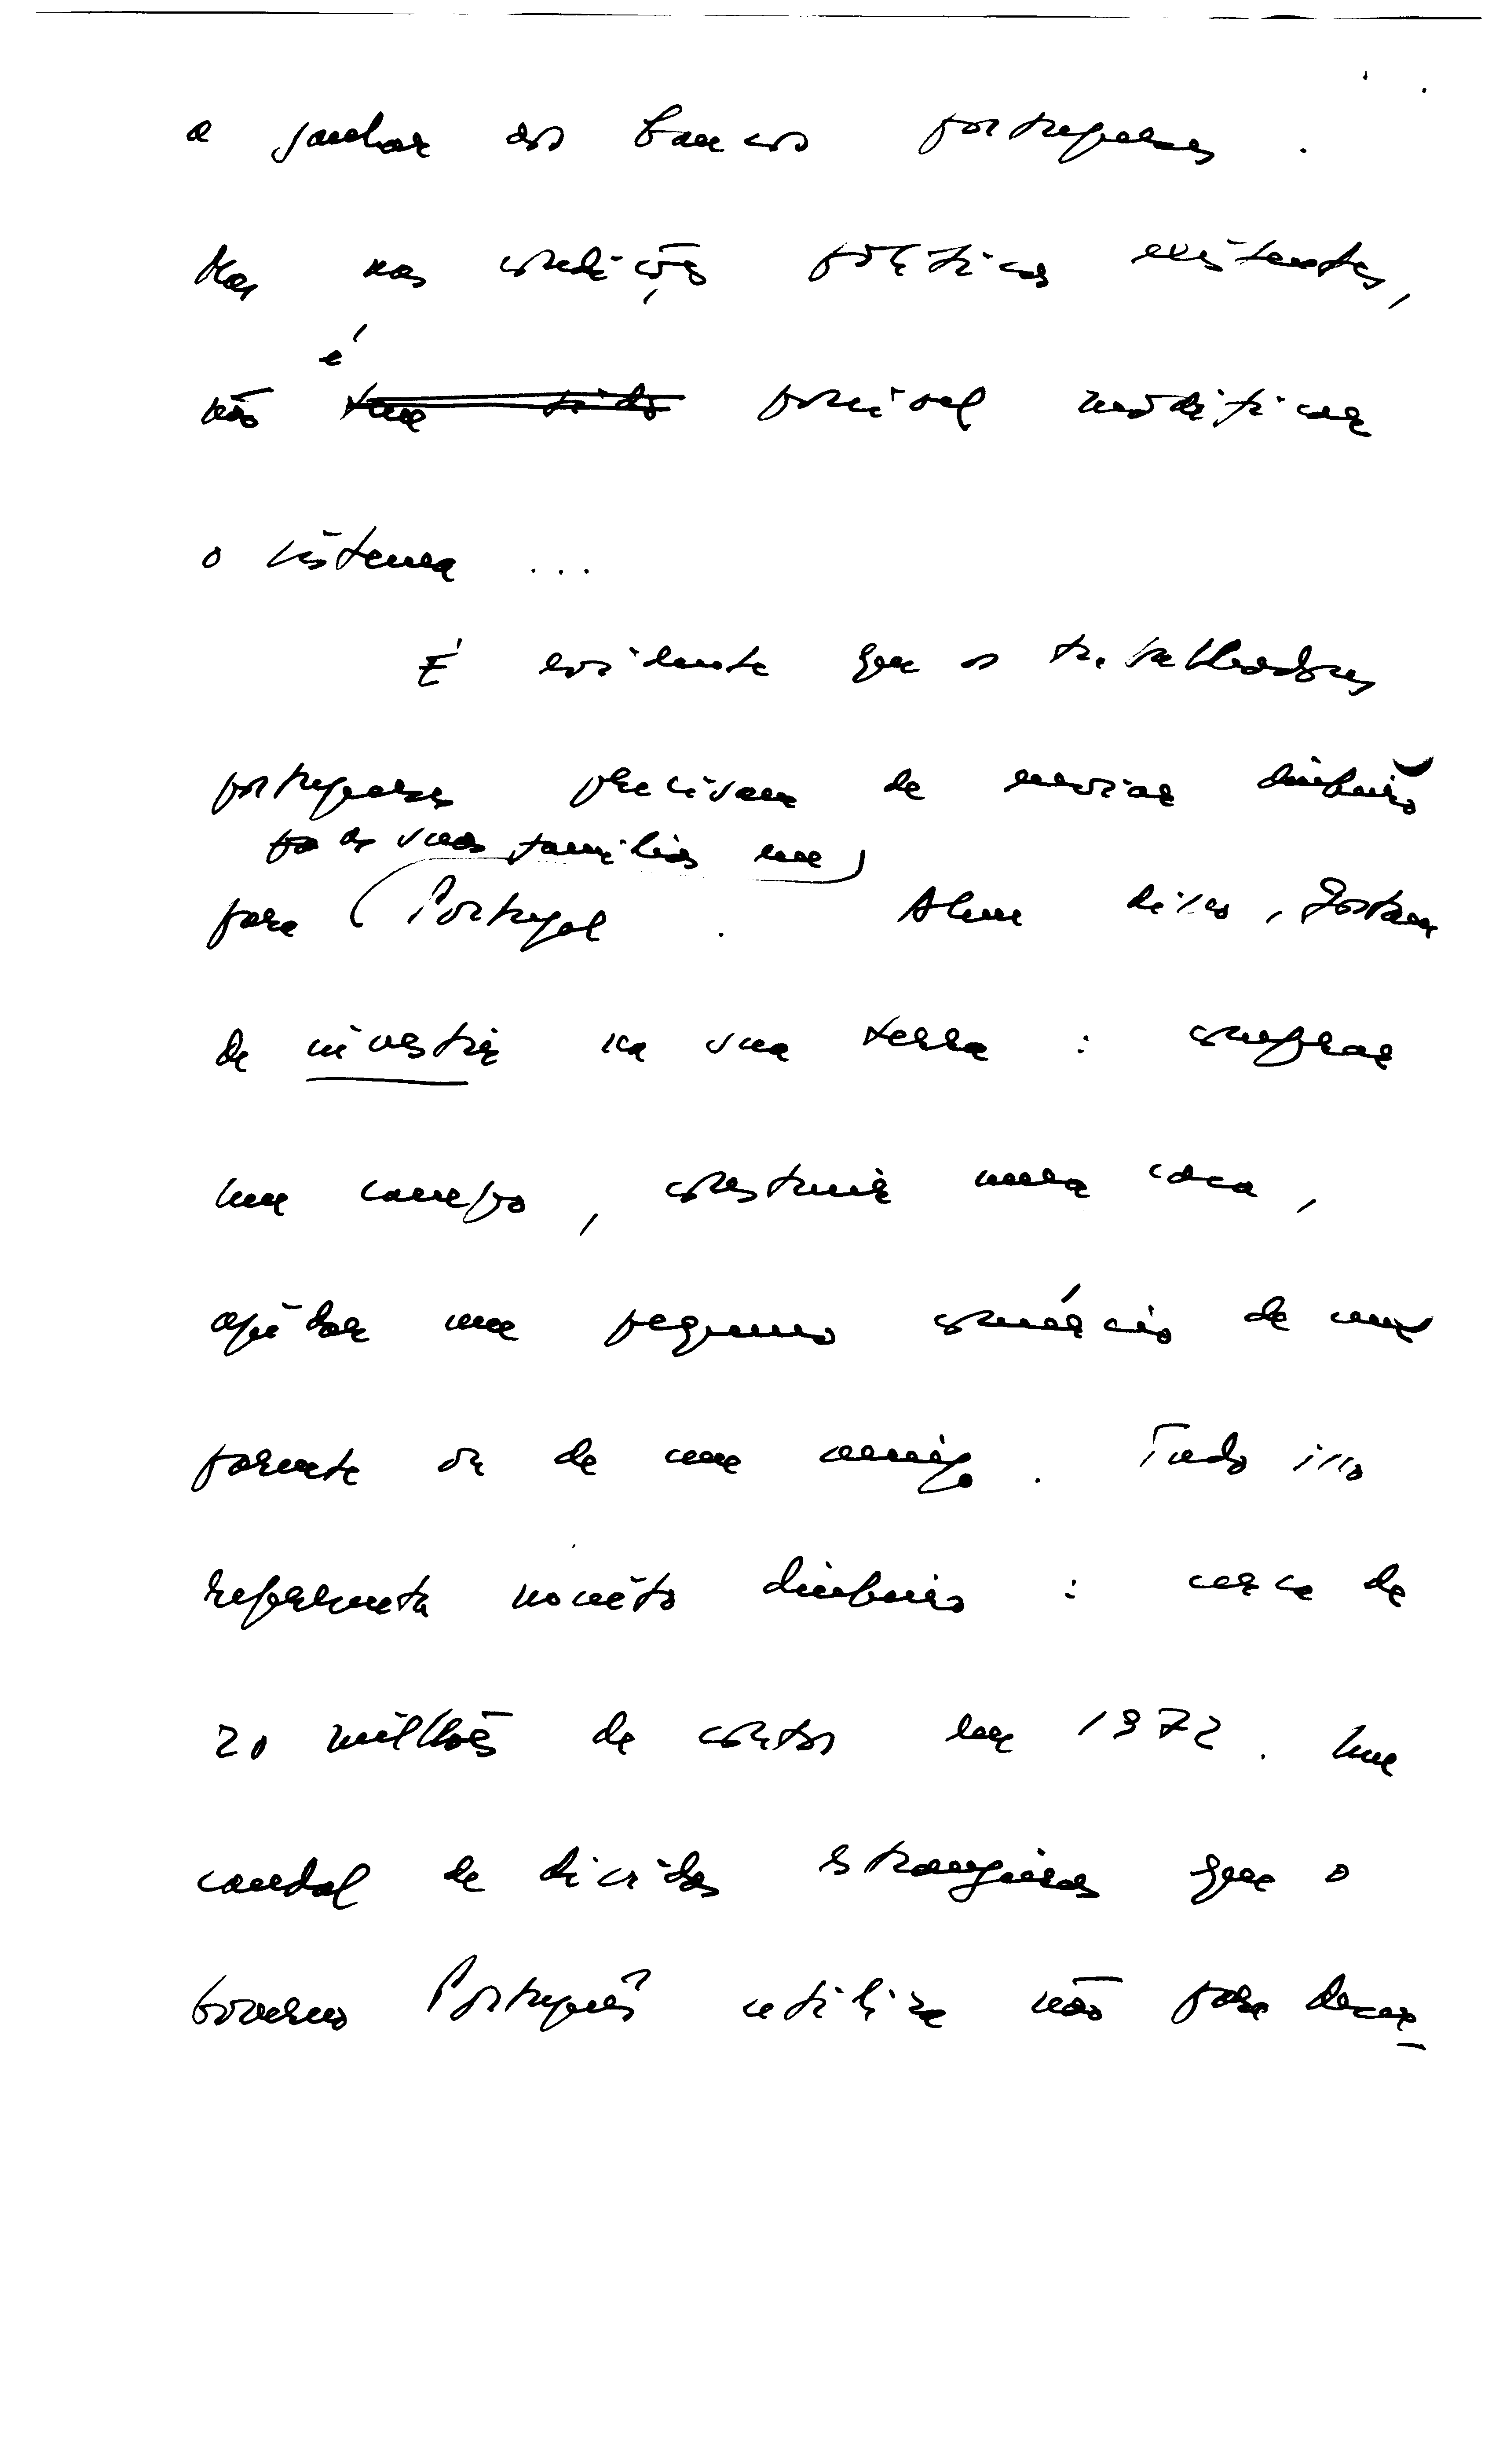 a ganhar aos bancos portugueses.
Mas nas condições políticas existentes,
é
não tem sido possível modificar
o sistema ...
É evidente que os trabalhadores
portugueses precisam de enviar dinheiro
as suas famílias em
para Portugal. Alem disso, gostam
de investir na sua terra : comprar
um campo, construir uma casa,
ajudar um pequeno comércio de um
parente ou de um amigo. Tudo isso
representa muito dinheiro : cerca de
20 milhões de contos em 1972. Um
caudal de divisas estrangeiras que o
Governo Português utiliza não para